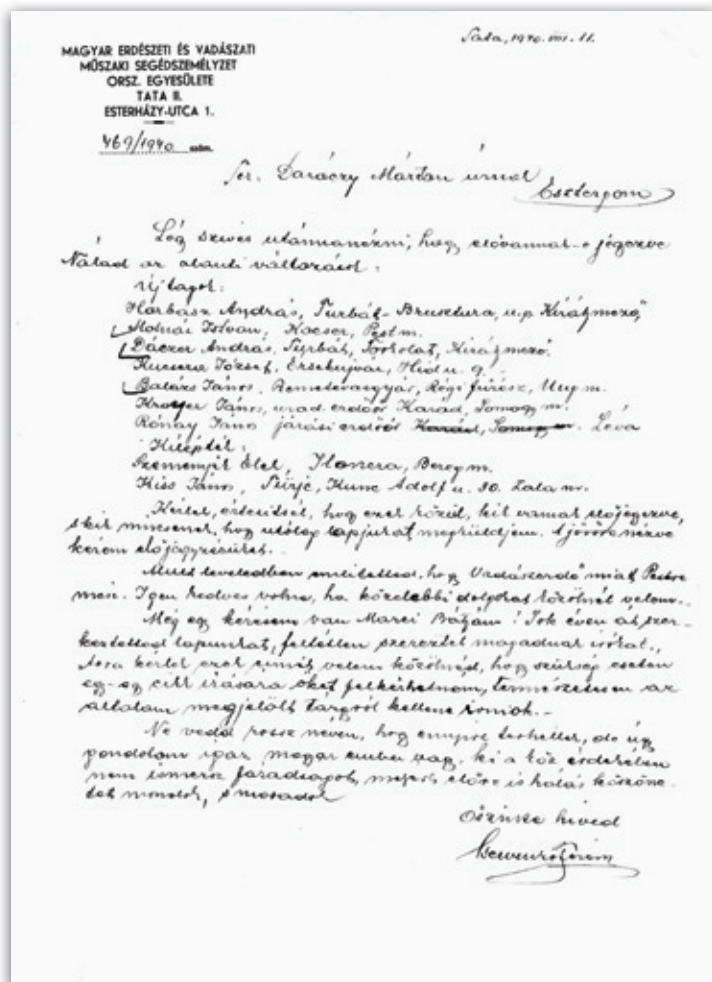 Tata, 1940. III. 11.
MAGYAR ERDÉSZETI ÉS VADÁSZATI
MŰSZAKI SEGÉDSZEMÉLYZET
ORSZ. EGYESÜLETE
TATA II.
ESTERHÁZY-UTCA 1.
469/1940 szám.
Daróczy Márton úrnak
Esztergom
Légy szíves utánnanézni, hogy elővannak-e jegyezve
Nálad az alanti változások:
Új tagok:
Horbasz András, Turbát-Brusztura, u.p. Királymező,
Molnár István, Kocsér, Pest m.
Dáczer András, Turbát, Királymező.
Kucsera József, Érsekujvár, Hid u. 9.
Balázs János, Remetevasgyár, Régi fürész, Ung m.
János, urad. erdőőr Karád, Somogy m.
Rónay János járási erdőőr Karád, Somogy m. Léva
Kiléptek:
Szemenyik Elek, Ilonca, Bereg m.
Kiss János, Türje, Kunc Adolf u. 30. Zala m.
Kérlek, értesíts, hogy ezek közül, kik vannak előjegyezve,
s kik nincsenek, hogy utólag lapjukat megküldjem. A jövőre nézve
kérem előjegyzésüket.
Mult leveledben emlitetted, hogy "Vadászerdő" miatt Pestre
mész. Igen kedves volna, ha közelebbi dolgokat közölnél velem.
Még egy kérésem van Marci Bátyám! Sok éven át szer-
kesztetted lapunkat, feltétlen szereztél magadnak irókat,
arra kérlek ezek cimét velem közölnéd, hogy szükség esetén
egy-egy cikk irására őket felkérhetném, természetesen az
általam megjelölt tárgyról kellene irniok.-
Ne vedd rossz néven, hogy ennyire terhellek, de úgy
gondolom igaz magyar ember vagy, ki a köz érdekében
nem ismersz fáradságot, előre is hálás köszöne-
tet mondok, s maradok
Őszinte hived